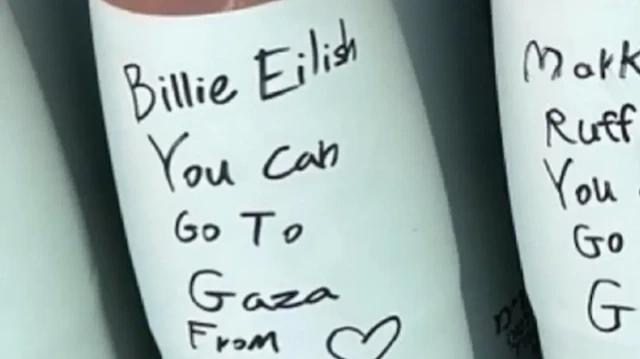 Billie Eilish
You can
Go To
Gaza
From ♡
Mark
Ruff
You
Go
G